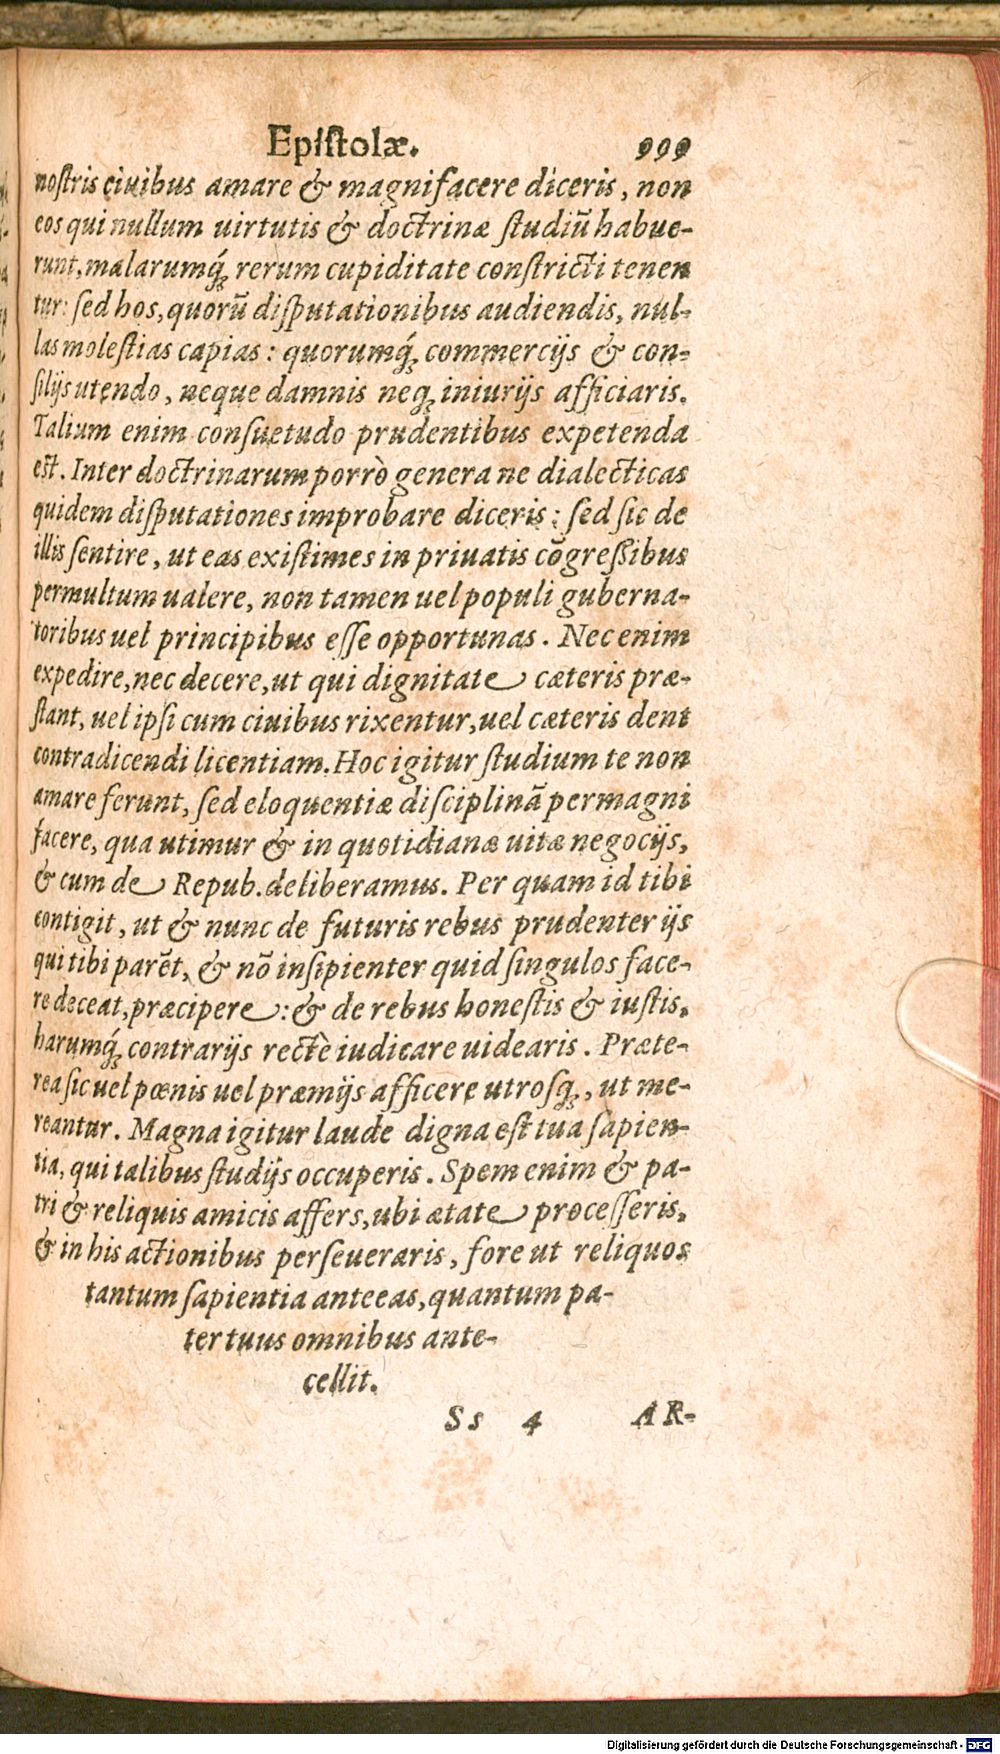 Epistolæ. 999
nostris ciuibus amare & magnifacere diceris, non
eos qui nullum uirtutis & doctrinæ studiũ habue-
runt, malarumq́; rerum cupiditate constricti tenen
tur: sed hos, quorũ disputationibus audiendis, nul-
las molestias capias: quorumq́; commercijs & con-
silijs utendo, neque damnis neq; iniurijs afficiaris.
Talium enim consuetudo prudentibus expetenda
est. Inter doctrinarum porrò genera ne dialecticas
quidem disputationes improbare diceris: sed sic de
illis sentire, ut eas existimes in priuatis cõgressibus
permultum ualere, non tamen uel populi guberna-
toribus uel principibus esse opportunas. Nec enim
expedire, nec decere, ut qui dignitate cæteris præ-
stant, uel ipsi cum ciuibus rixentur, uel cæteris dent
contradicendi licentiam. Hoc igitur studium te non
amare ferunt, sed eloquentiæ disciplinã permagni
facere, qua utimur & in quotidianæ uitæ negocijs,
& cum de Repub. deliberamus. Per quam id tibi
contigit, ut & nunc de futuris rebus prudenter ijs
qui tibi parẽt, & nõ insipienter quid singulos face-
re deceat, præcipere: & de rebus honestis & iustis,
harumq́; contrarijs rectè iudicare uidearis. Præte-
rea sic uel pœnis uel præmijs afficere utrosq;, ut me-
reantur. Magna igitur laude digna est tua sapien-
tia, qui talibus studijs occuperis. Spem enim & pa-
tri & reliquis amicis affers, ubi ætate processeris,
& in his actionibus perseueraris, fore ut reliquos
tantum sapientia anteeas, quantum pa-
ter tuus omnibus ante-
cellit.
Ss 4 AR-
Digitalisierung gefördert durch die Deutsche Forschungsgemeinschaft - DFG